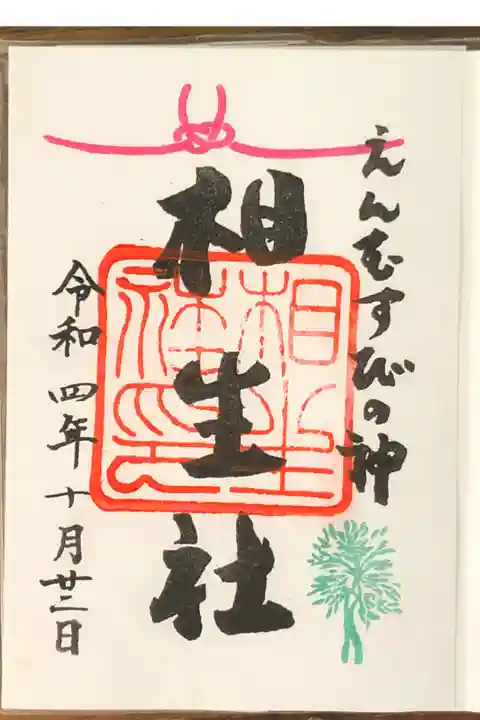 えんむすびの神
相生社
令和四年十月廿二日